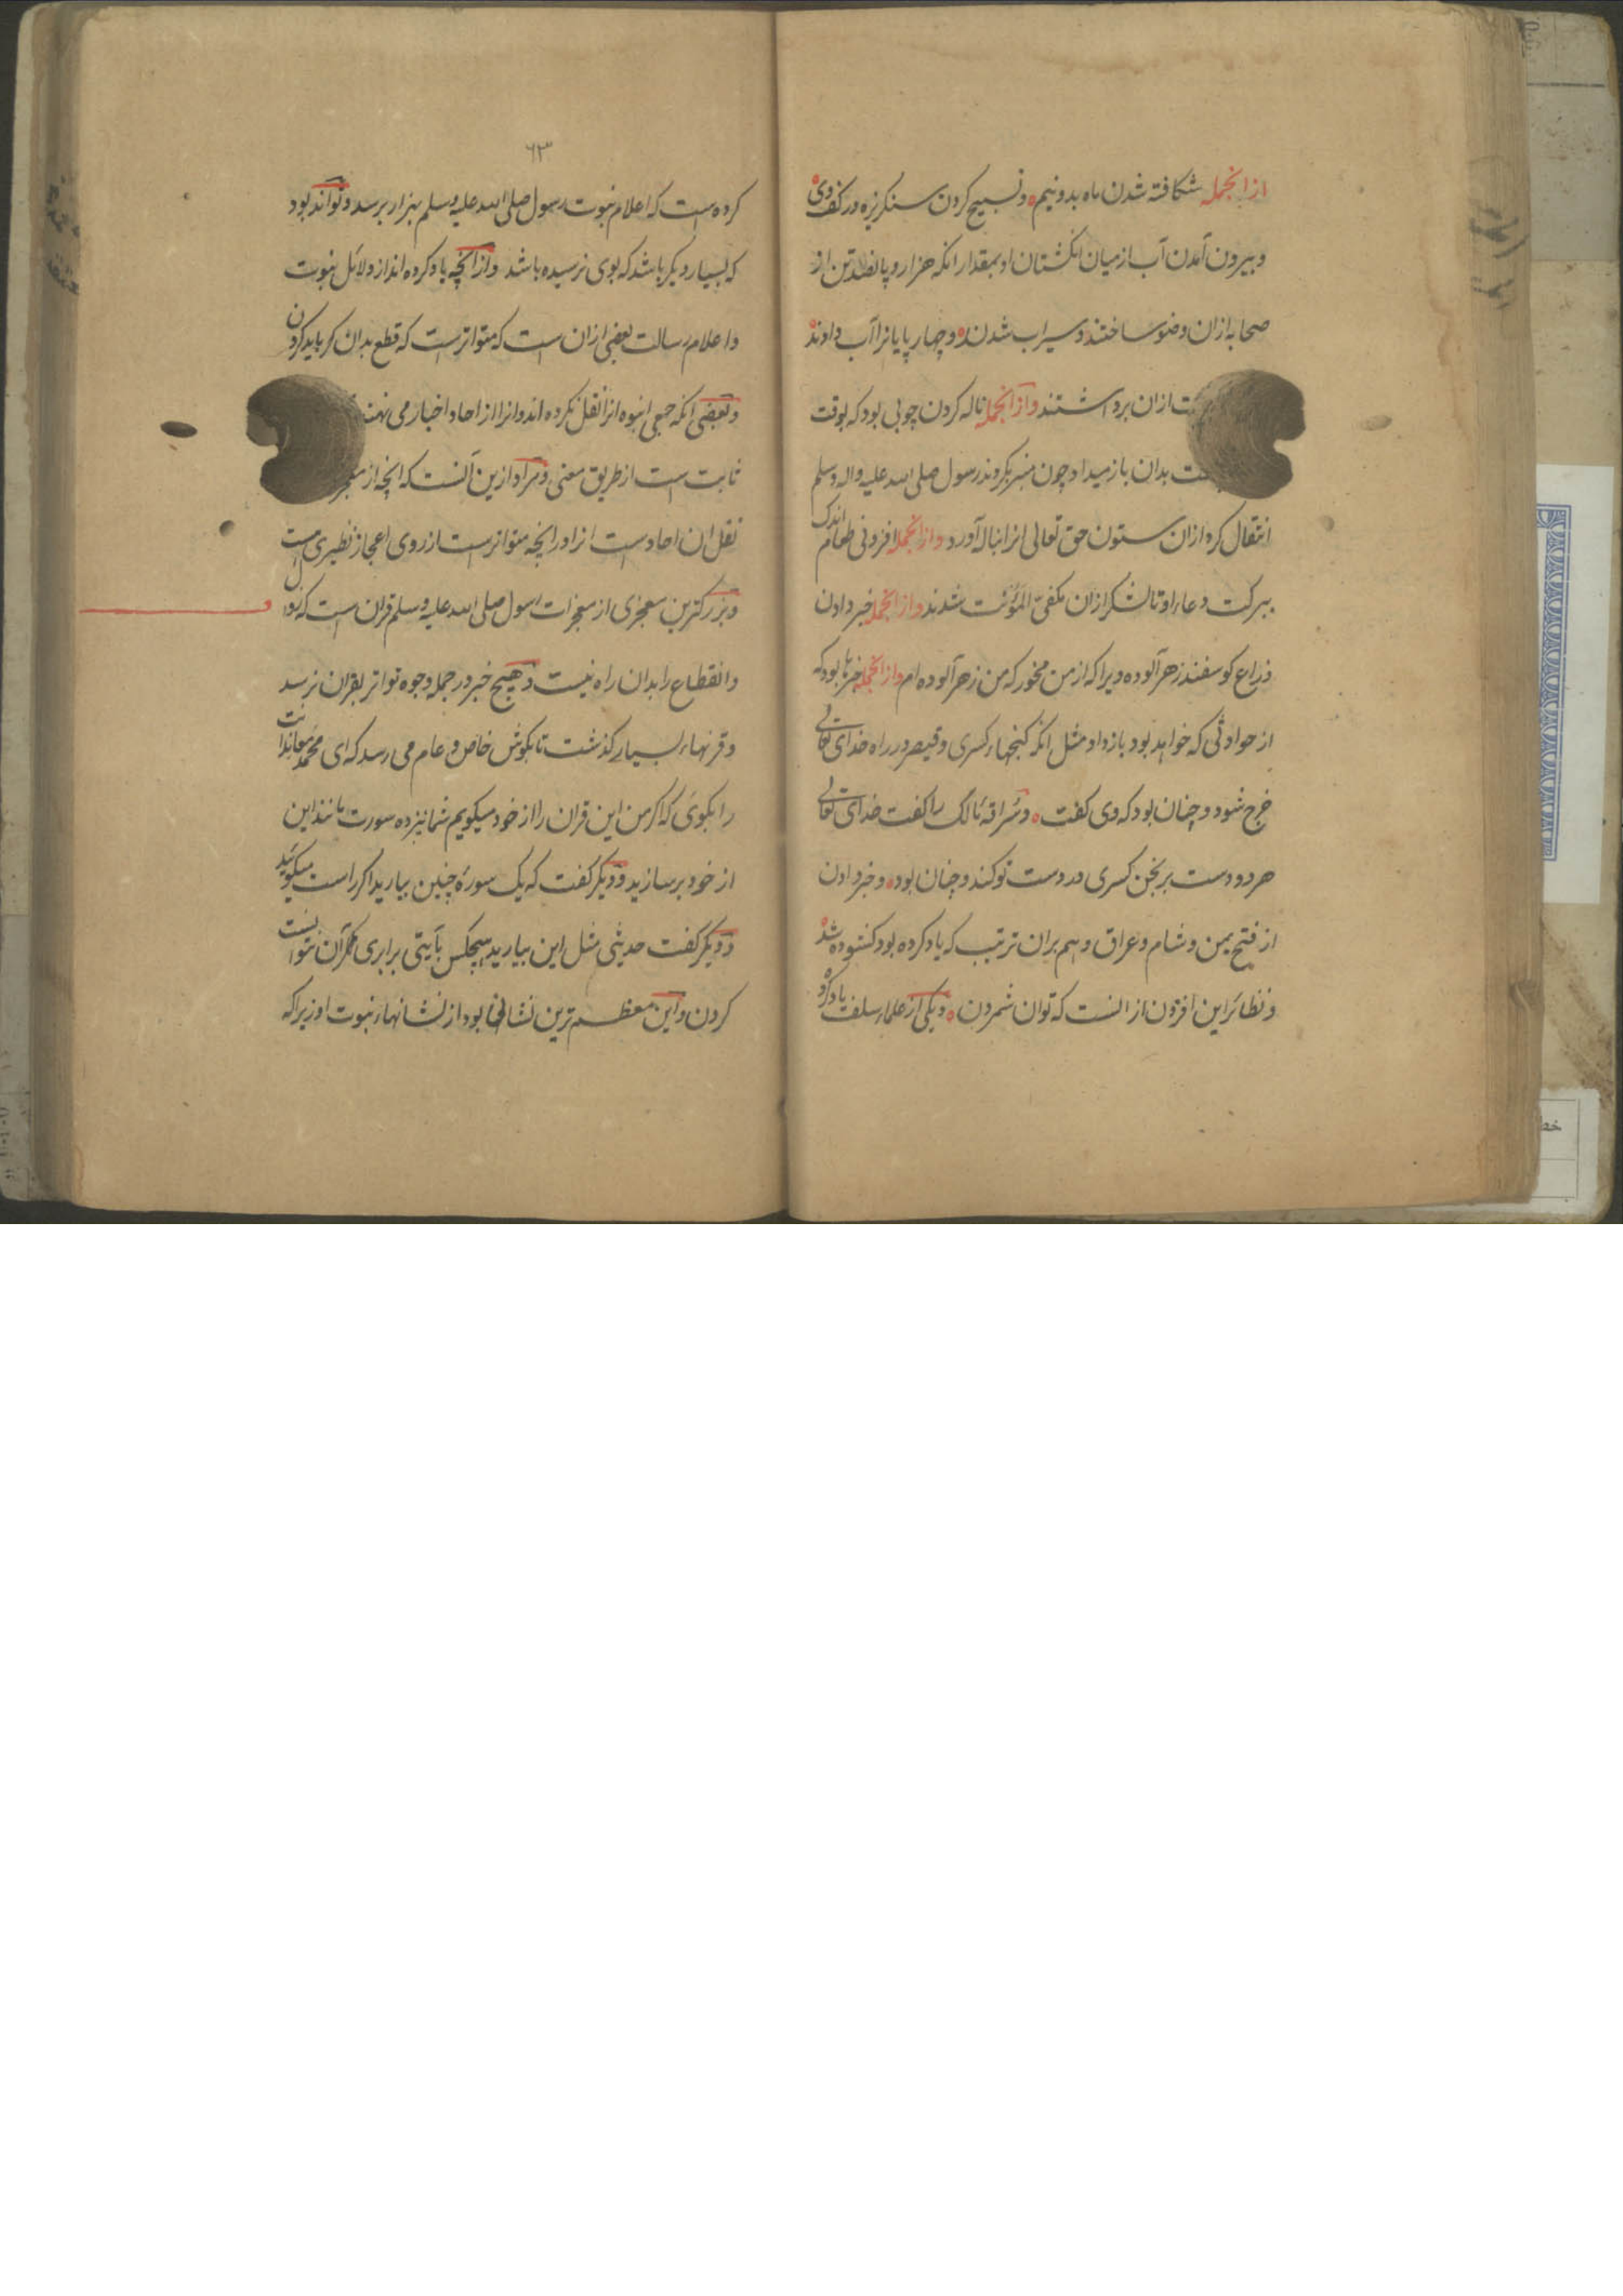 ازانجمله شکافته شدن ماه بدونیم و تسبیح کردن سنکریزه در کف وی
و بیرون آمدن آب از میان انکشتان او بمقدار انکه هزار و پانصد تن از
صحابه ازان وضو ساختند و سیراب شدند و چهار پایانرا آب دادند
ازان برداشتند و ازانجمله ناله کردن چوبی بود که بوقت
بدان باز میداد چون منبر بکردند رسول صلی الله علیه و اله وسلم
انتقال کرد ازان ستون حق تعالی انرا بناله آورد و ازانجمله افزونی طعام اندک
ببرکت دعاء او تا لشکر ازان مکفی المؤنت شدند و ازانجمله خبر دادن
ذراع کوسفند زهر آلوده ویرا که از من مخور که من زهر آلوده ام و ازانجمله خبرها بود که
از حوادثی که خواهد بود باز داد مثل انکه کنجهاء کسری و قیصر در راه خدای تعالی
خرج شود و چنان بود که وی کفت و سراقه مالک را کفت خدای تعالی
هر دو دست برنجن کسری در دست تو کند و چنان بود و خبر دادن
از فتح یمن و شام و عراق و هم بران ترتیب که یاد کرده بود کشوده شد
و نظائر این افزون از انست که توان شمردن و یکی از علماء سلف یاد کرد
۶۳
کرده است که اعلام نبوت رسول صلی الله علیه وسلم بهزار برسد و تواند بود
که بسیار دیکر باشد که بوی نرسیده باشد و از انچه یاد کرده اند از دلائل نبوت
و اعلام رسالت بعضی ازان است که متواترست که قطع بدان کر باید کردن
و بعضی انکه جمعی انبوه انرا نقل نکرده اند و انرا از احاد اخبار می نهند
ثابت است از طریق معنی و مراد ازین آنست که انچه از معجز
نقل ان احادست انرا ورا انچه متواترست از روی اعجاز نظیری هست
و بزرکترین معجزی از معجزات رسول صلی الله علیه وسلم قران است که زوال
و انقطاع را بدان راه نیست و هیچ خبر در جمله وجوه تواتر بقران نرسد
و قرنهاء بسیار کذشت تا بکوش خاص و عام می رسد که ای محمد معاندانت
را بکوی که اکر من این قران را از خود میکویم شما نیز ده سورت مانند این
از خود بر سازید و دیکر کفت که یک سورهٔ چنین بیارید اکر راست میکوئید
و دیکر کفت حدیثی مثل این بیارید هیچکس بآیتی برابری مکر آن نتوانست
کردن و این معظم ترین نشانی بود از نشانهاء نبوت او زیرا که